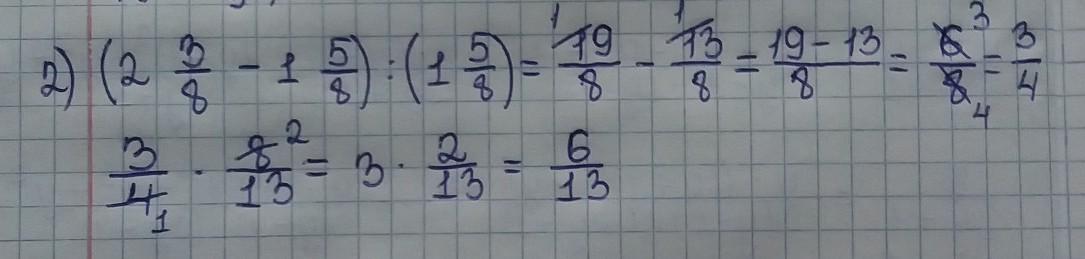 2) (2 3/8 - 1 5/8) : (1 5/8) = 19/8 - 13/8 = (19 - 13)/8 = 6 3/8 4 = 3/4
3/4 1 · 8 2/13 = 3 · 2/13 = 6/13